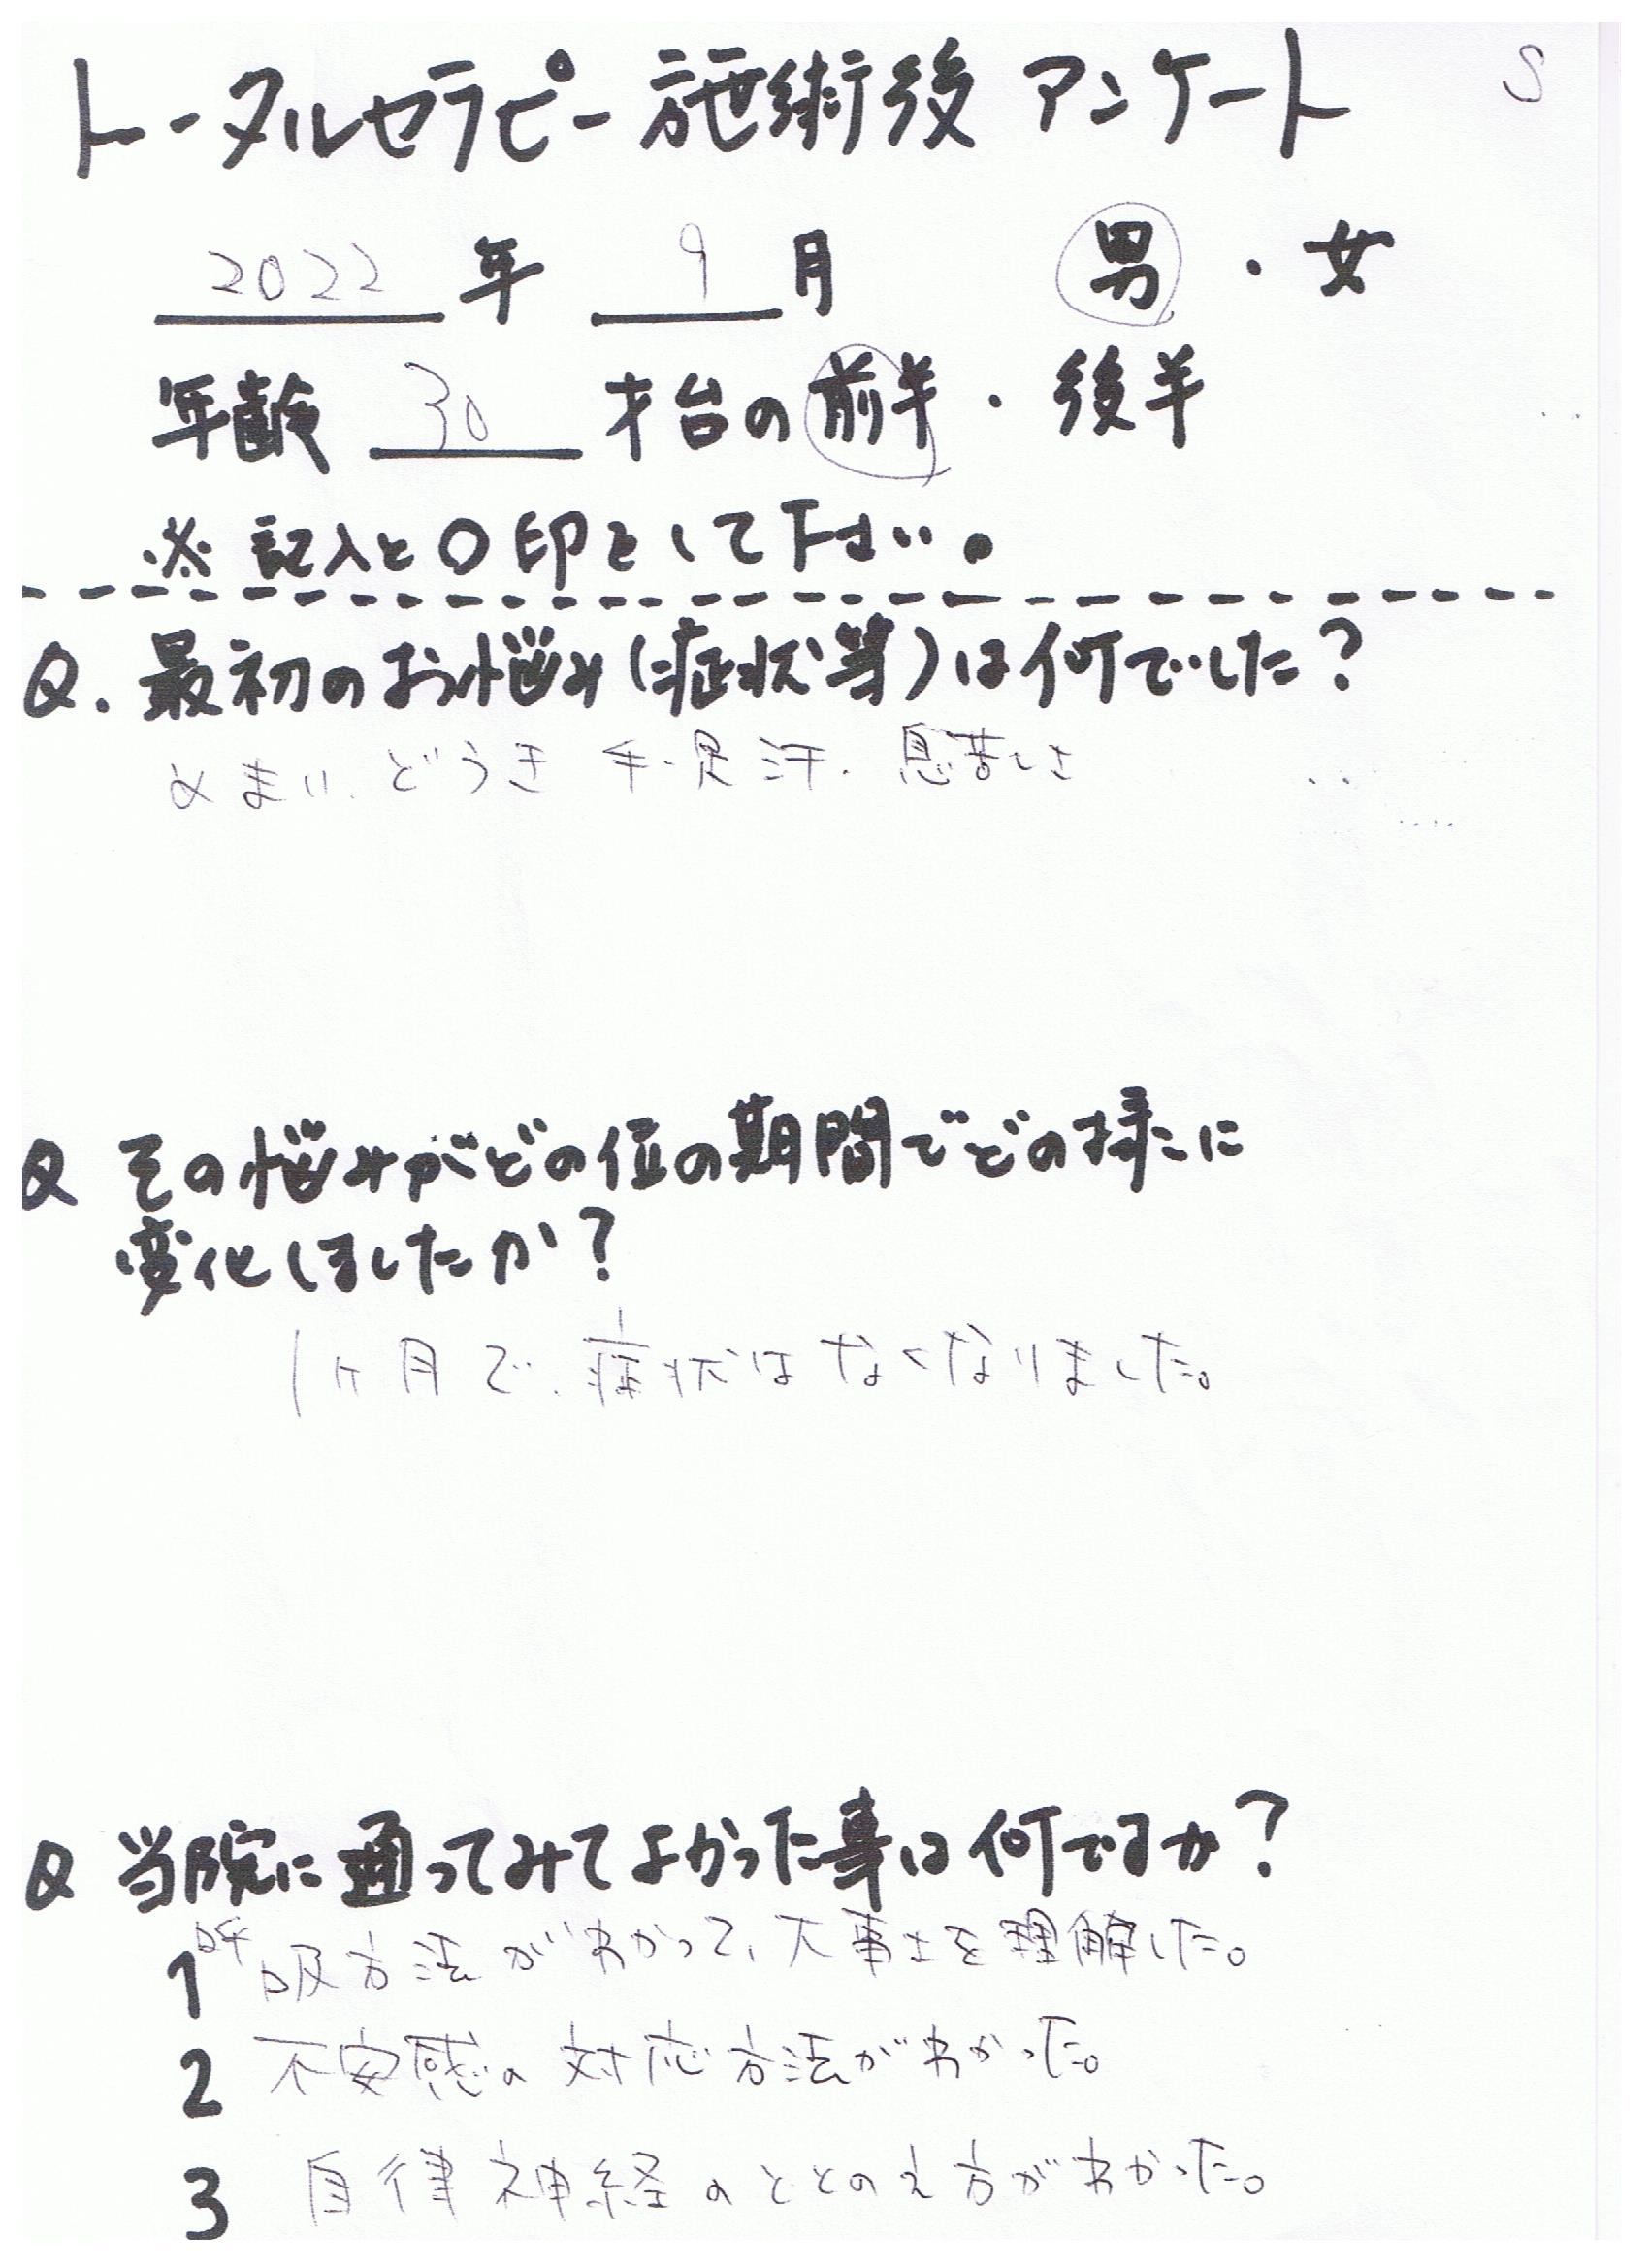 トータルセラピー施術後 アンケート S
2022 年 9 月 男・女
年齢 30 才台の前半・後半
※記入と○印をして下さい。
Q. 最初のお悩み(症状等)は何でした?
めまい、どうき 手・足汗、息苦しさ
Q その悩みがどの位の期間でどの様に
変化しましたか?
1ヶ月で、症状はなくなりました。
Q 当院に通ってみてよかった事は何ですか?
1 呼吸方法がわかって、大事さを理解した。
2 不安感の対応方法がわかった。
3 自律神経のととのえ方がわかった。